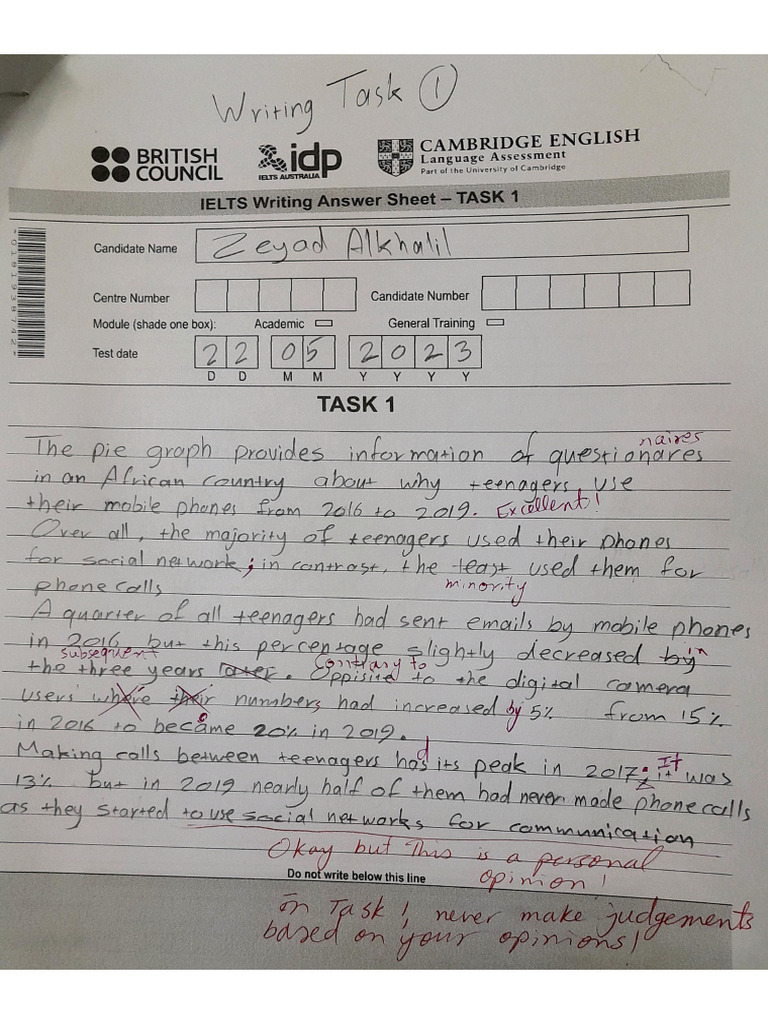 Writing Task 1
BRITISH COUNCIL
idp
IELTS AUSTRALIA
CAMBRIDGE ENGLISH
Language Assessment
Part of the University of Cambridge
IELTS Writing Answer Sheet – TASK 1
Candidate Name Zeyad Alkhalil
Centre Number Candidate Number
Module (shade one box): Academic General Training
Test date 22 05 2023
D D M M Y Y Y Y
TASK 1
naires
The pie graph provides information of questionares
in an African country about why teenagers use
their mobile phones from 2016 to 2019. Excellent!
Over all, the majority of teenagers used their phones
for social network; in contrast, the least used them for
minority
phone calls
A quarter of all teenagers had sent emails by mobile phones
in 2016 but this percentage slightly decreased by in
subsequent contrary to
the three years later. Oppisite to the digital camera
users where their numbers had increased by 5% from 15%
in 2016 to became 20% in 2019.
Making calls between teenagers had its peak in 2017; it It was
13% but in 2019 nearly half of them had never made phone calls
as they started to use social networks for communication
Okay but This is a personal
opinion!
Do not write below this line
In Task 1, never make judgements
based on your opinions!